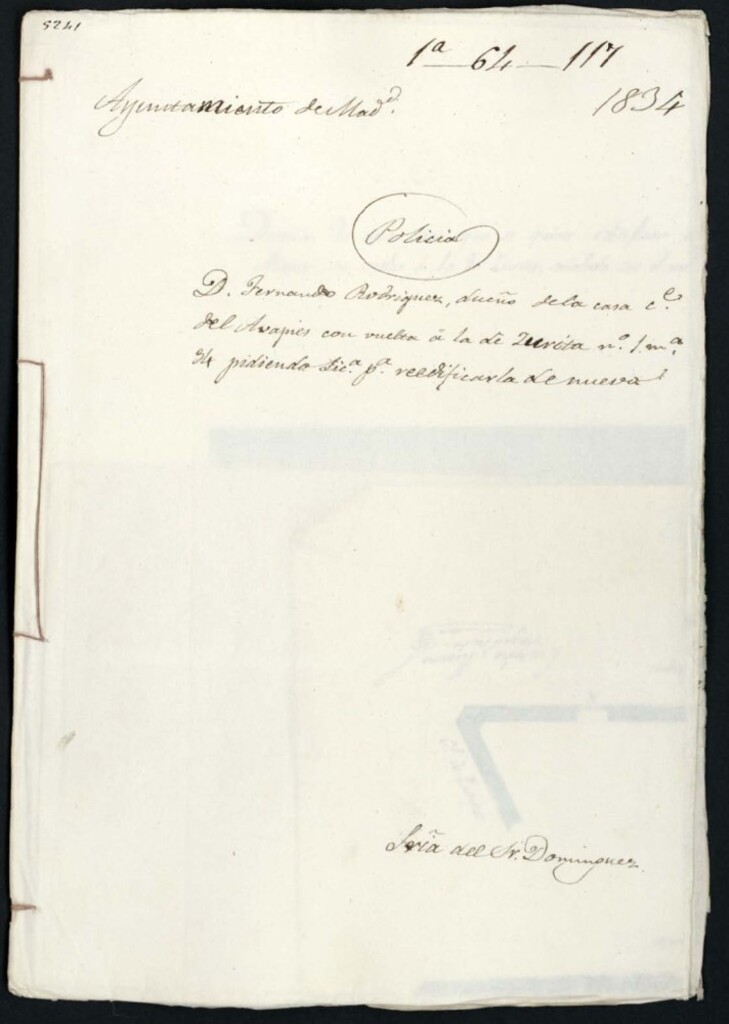 5241
1ª 64 117
Ayuntamiento de Mad.d 1834
Policia
D. Fernando Rodriguez, dueño de la casa c.e
del Avapies con vuelta á la de Zurita n.º 1. m.a
34 pidiendo Lic.a p.a reedificarla de nueva
Sria del Sr. Dominguez